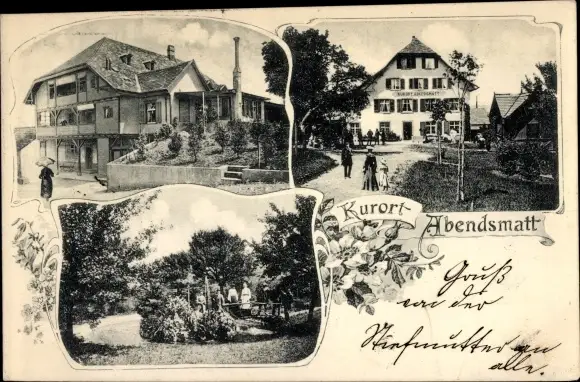 KURORT ABENDSMATT
Kurort-
Abendsmatt
Gruß
von der
Stiefmutter an
alle.